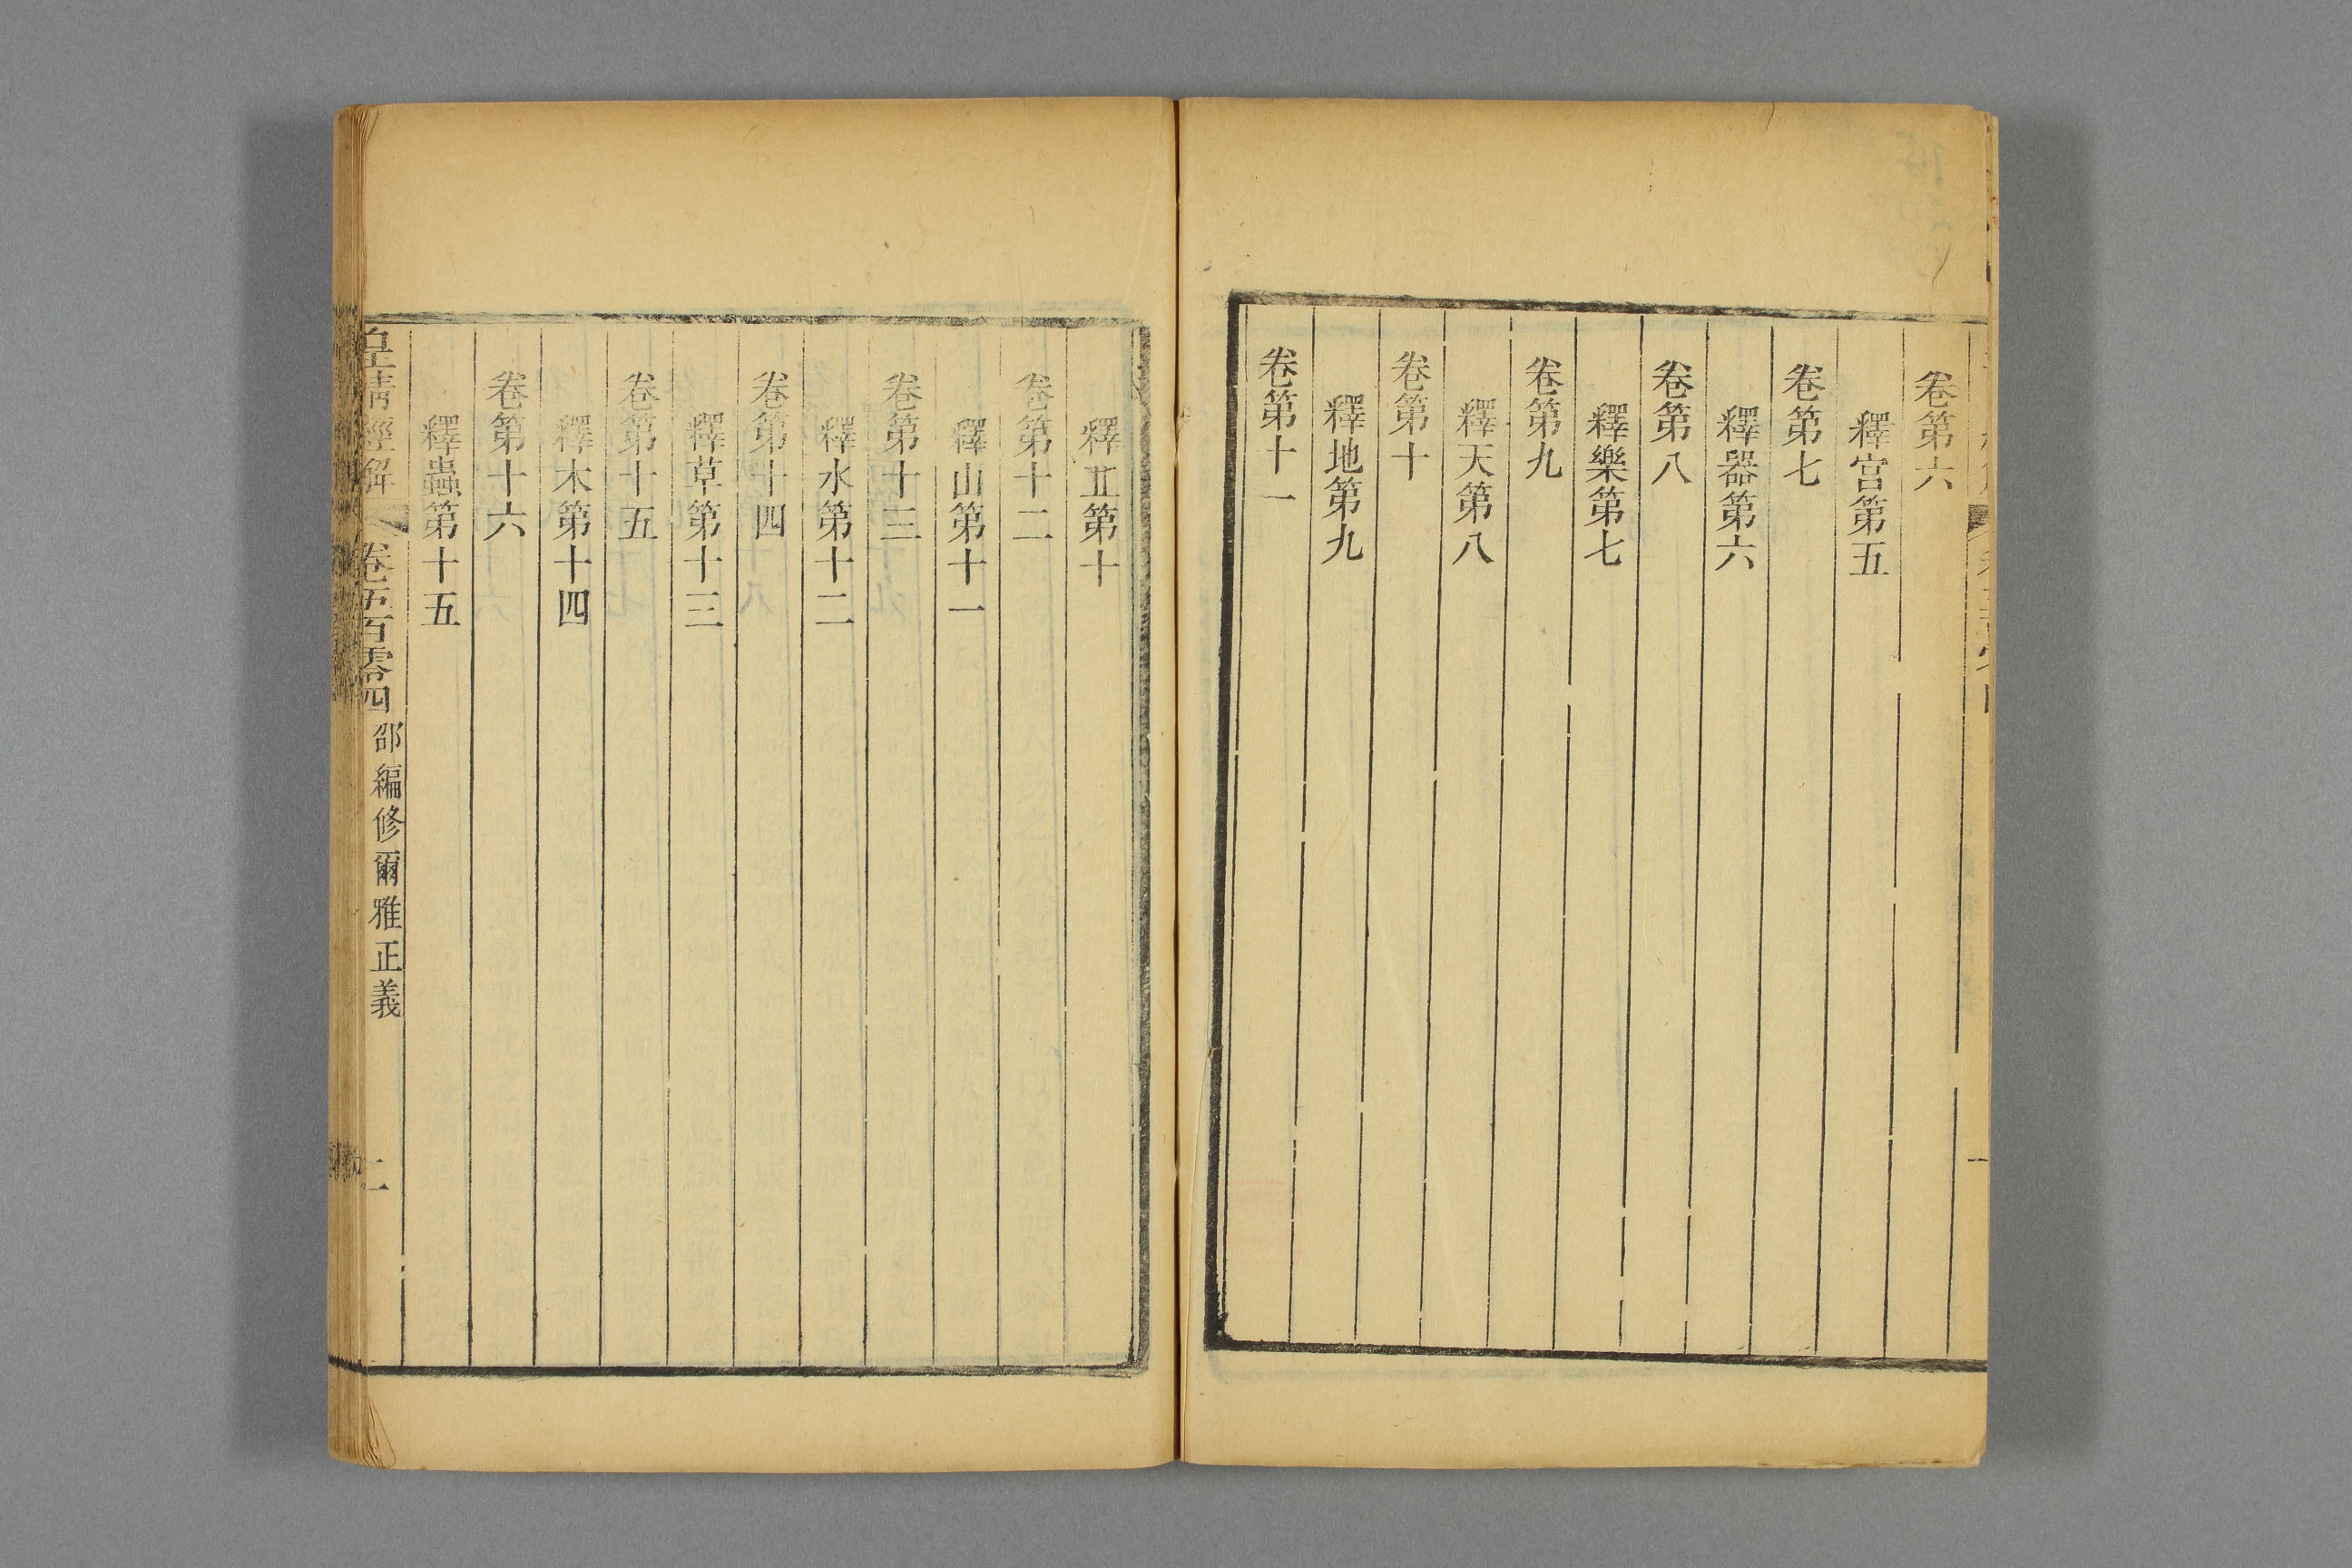 卷第六
釋宮第五
卷第七
釋器第六
卷第八
釋樂第七
卷第九
釋天第八
卷第十
釋地第九
卷第十一
釋丠第十
卷第十二
釋山第十一
卷第十三
釋水第十二
卷第十四
釋草第十三
卷第十五
釋木第十四
卷第十六
釋蟲第十五
皇清經解 卷五百零四 邵編修爾雅正義 二